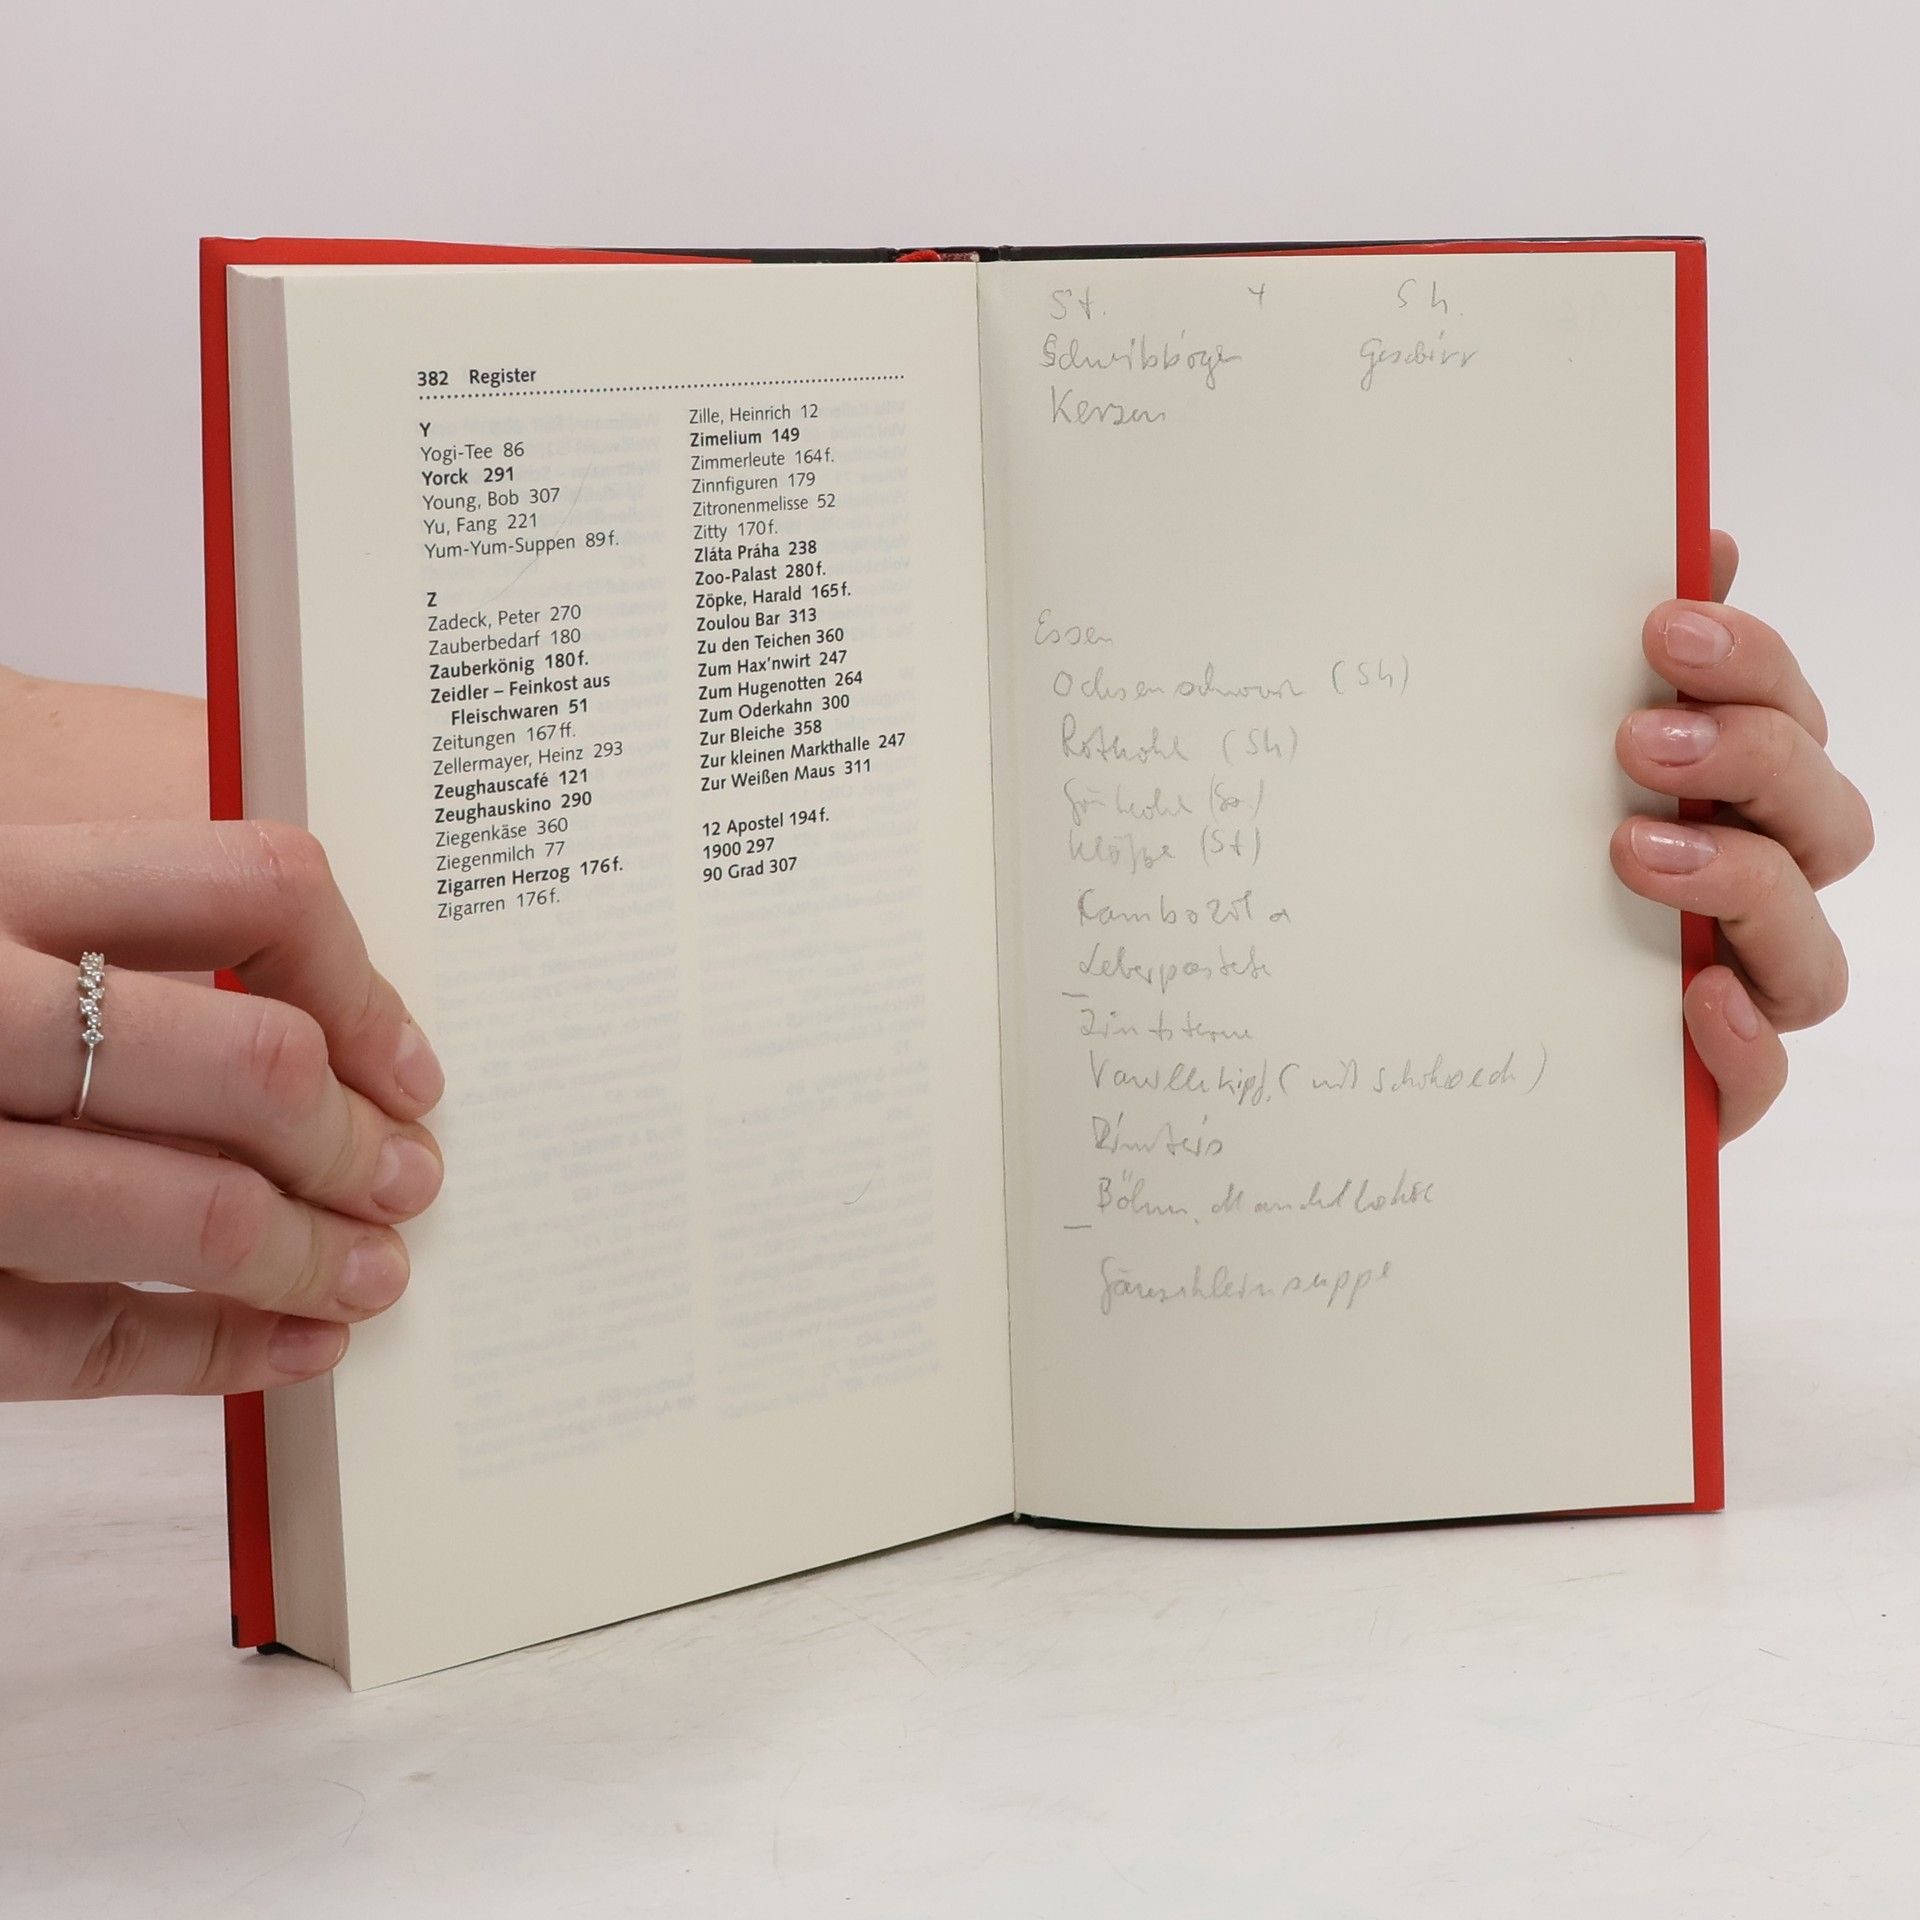 382 Register
Y
Yogi-Tee 86
Yorck 291
Young, Bob 307
Yu, Fang 221
Yum-Yum-Suppen 89f.
Z
Zadeck, Peter 270
Zauberbedarf 180
Zauberkönig 180f.
Zeidler – Feinkost aus
Fleischwaren 51
Zeitungen 167ff.
Zellermayer, Heinz 293
Zeughauscafé 121
Zeughauskino 290
Ziegenkäse 360
Ziegenmilch 77
Zigarren Herzog 176f.
Zigarren 176f.
Zille, Heinrich 12
Zimelium 149
Zimmerleute 164f.
Zinnfiguren 179
Zitronenmelisse 52
Zitty 170f.
Zláta Práha 238
Zoo-Palast 280f.
Zöpke, Harald 165f.
Zoulou Bar 313
Zu den Teichen 360
Zum Hax'nwirt 247
Zum Hugenotten 264
Zum Oderkahn 300
Zur Bleiche 358
Zur kleinen Markthalle 247
Zur Weißen Maus 311
12 Apostel 194f.
1900 297
90 Grad 307
St. Sh.
Schwibbögen Geschirr
Kerzen
Essen
Ochsenschwanz (Sh)
Rotkohl (Sh)
Klöße (St)
Cambozola
Leberpastete
Zimtsterne
Vanillekipf. (mit
Zimteis
Böhm.
suppe